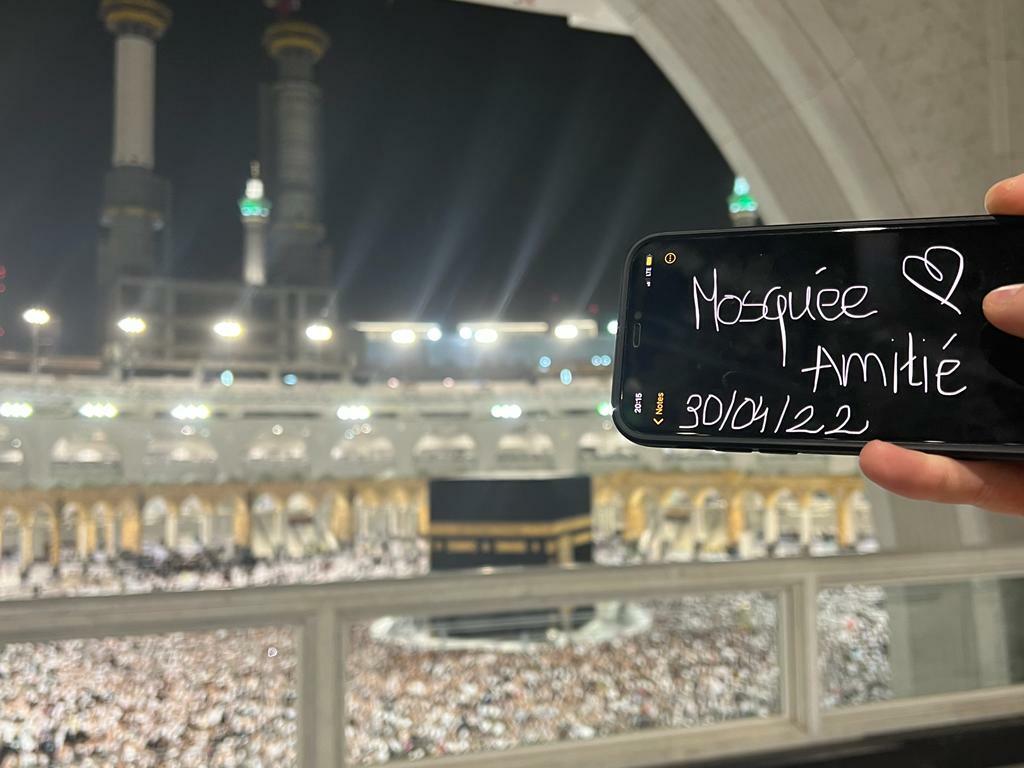 Mosquée
Amitié
30/04/22
20:15
LTE
Notes